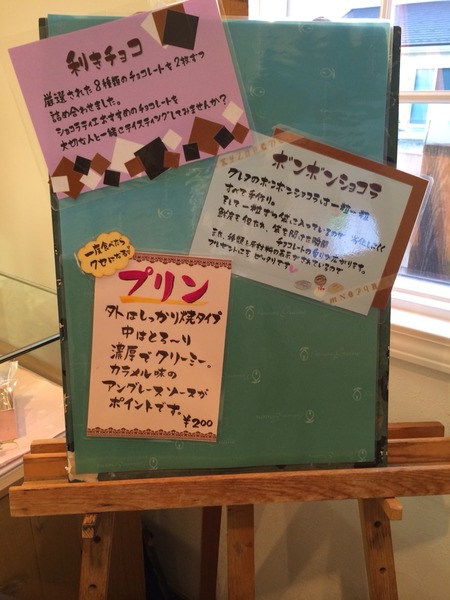 利きチョコ
厳選された8種類のチョコレートを2枚ずつ
詰め合わせました。
ショコラティエおすすめのチョコレートを
大切な人と一緒にテイスティングしてみませんか?
ボンボンショコラ
クレアのボンボンショコラは一粒一粒
すべて手作り。
そして一粒ずつ袋に入っているので
鮮度を保ち、袋を開けた瞬間
チョコレートの香りが広がります。
プレゼントにもピッタリです
一度食べたら
クセになる!
プリン
外はしっかり焼タイプ
中はとろ〜り
濃厚でクリーミー。
カラメル味の
アンブレースソースが
ポイントです。
¥200